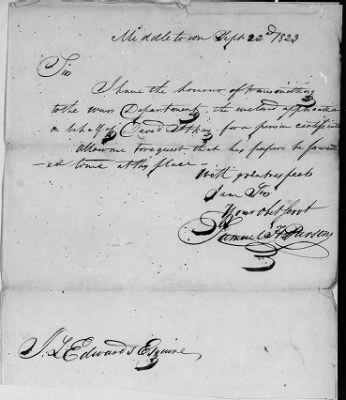 Middletown Sept 22d 1823
Sir
I have the honour of transmitting
to the War Department, the inclosed application
in behalf of David Atkins for a pension certificate
allow me to request that his papers be forward
-ed to me at this place -
With great respect
I am Sir
Your obt Servt
Samuel H Parsons
J. L. Edwards Esquire,